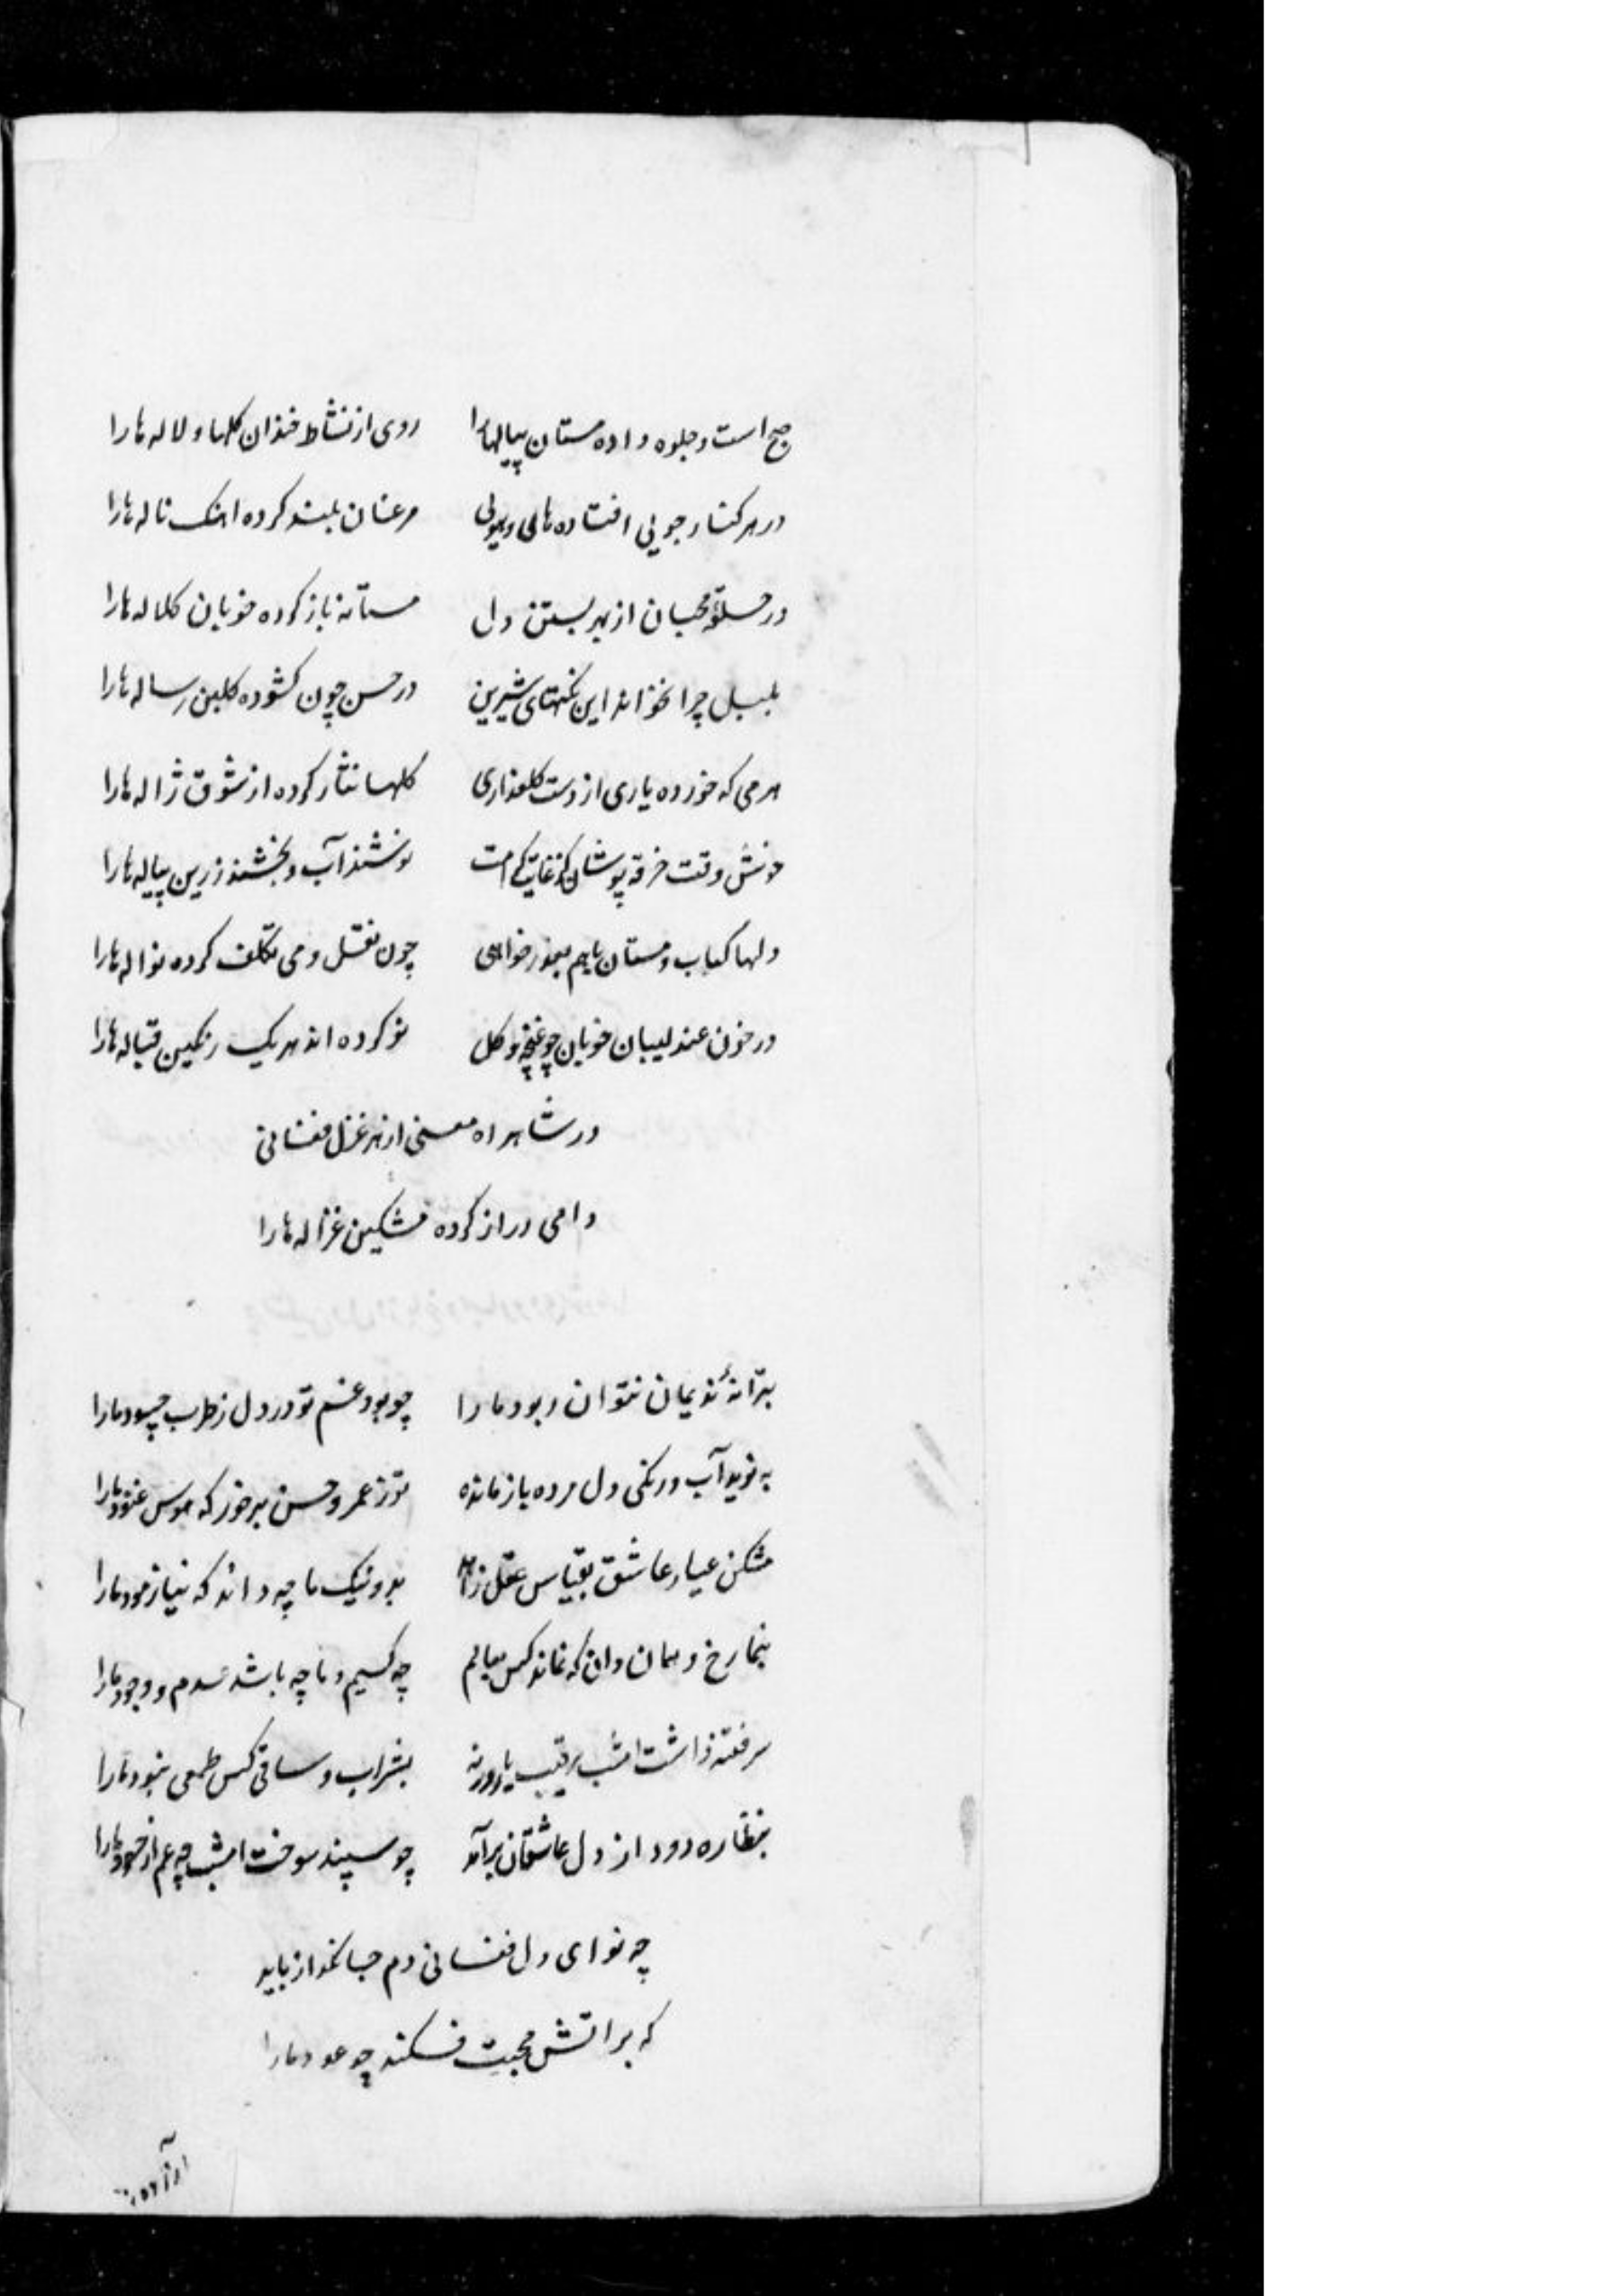 صبح است و جلوه داده مستان پیالها را روی از نشاط خندان کلها و لاله ها را
در هر کنار جویی افتاده های و هویی مرغان بلند کرده اهنک ناله ها را
در حلقهٔ محبان از بهر بستن دل مستانه باز کرده خوبان کلاله ها را
بلبل چرا نخواند این نکتهای شیرین در حسن چون کشوده کلبن رساله ها را
هر می که خورده یاری از دست کلعذاری کلها نثار کرده از شوق ژاله ها را
خوش وقت خرقه پوشان کز غایت کرامت نوشند آب و بخشند زرین پیاله ها را
دلها کباب و مستان باهم بعذر خواهی چون نقل و می تکلف کرده نواله ها را
در خون عندلیبان خوبان چو غنچه و کل نو کرده اند هر یک رنکین قباله ها را
در شاهراه معنی از هر غزل فغانی
دامی دراز کرده مشکین غزاله ها را
بترانهٔ ندیمان نتوان ربود ما را چو بود غم تو در دل ز طرب چه سود ما را
به نوید آب و رنکی دل مرده باز مانده تو ز عمر و حسن برخور که هوس غنود ما را
مشکن عیار عاشق بقیاس عقل زاهد بد و نیک ما چه داند که نیازمود ما را
بنما رخ و همان دان که نماند کس بعالم چه کسیم و ما چه باشد عدم و وجود ما را
سر فتنه داشت امشب رقیب یار ورنه بشراب و ساقی کس طمعی نبود ما را
بنظاره دود از دل عاشقان برآمد چو سپند سوخت امشب چه غم از حسود ما را
چه نوای دل فغانی دم جانکداز باید
که بر اتش محبت فکند چو عود ما را